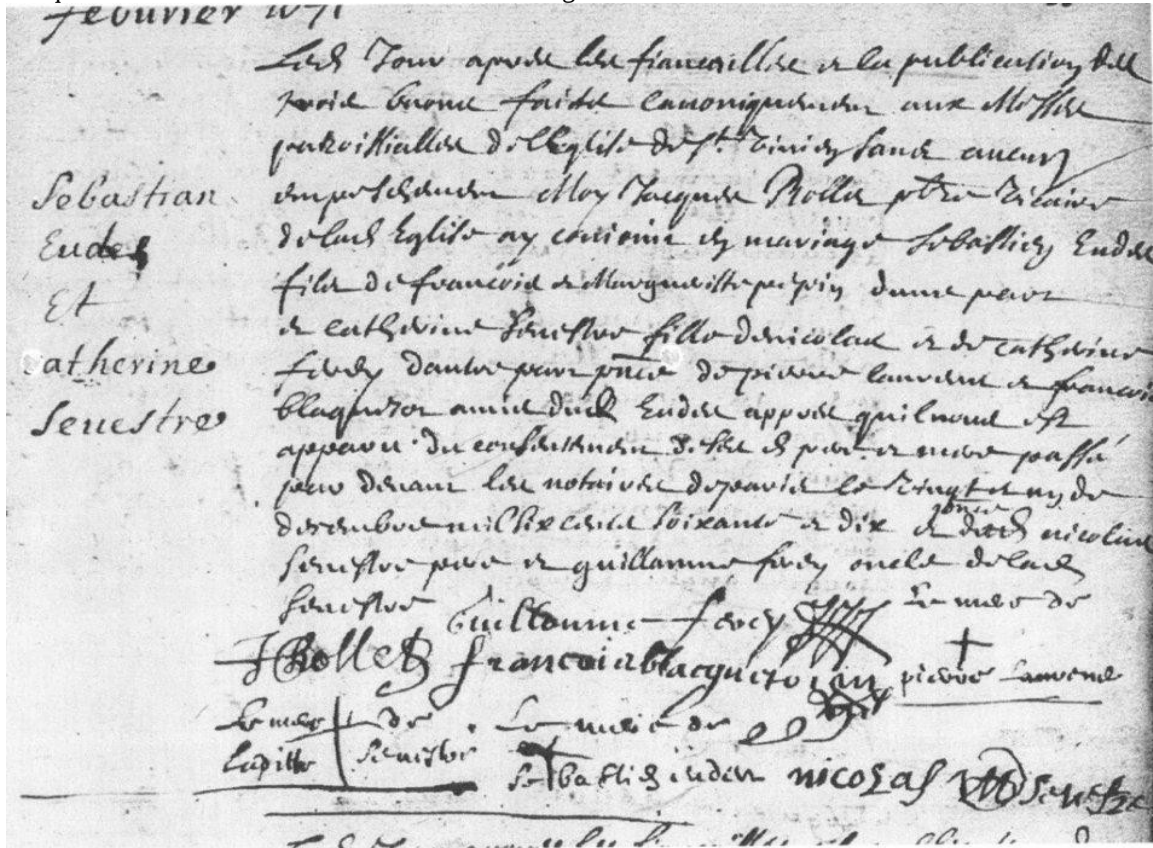 febvrier 1671
Sebastian
Eudes
Et
Catherine
Senestre
Led Jour apres les fiancailles et la publication des
trois bancs faicte canoniquement aux Messes
paroissialles de l'Eglise de St. sans aucun
empeschement Moy Jacques Rollet pbre Vicaire
de lad Eglise ay conioinct en mariage Sebastien Eudes
fils de francois et Margueritte pepin d'une part
et catherine Senestre fille de nicolas et de catherine
ferey d'autre part pnce de pierre laurent et francois
blaquetot amis dud Eudes appres quil nous est
apparu du consentement de ses d pere et mere passé
par devant les notaires de paris le Vingt et un de
decembre mil six cents soixante et dix et pnce dud nicolas
Senestre pere et guillaume ferey oncle de lad
Senestre
Guillaume ferey Le merc de
J Rollet francois blacquetot pierre Laurent
Le merc de Le merc de
Laditte Senestre Sebastien eudes nicolas Senestre